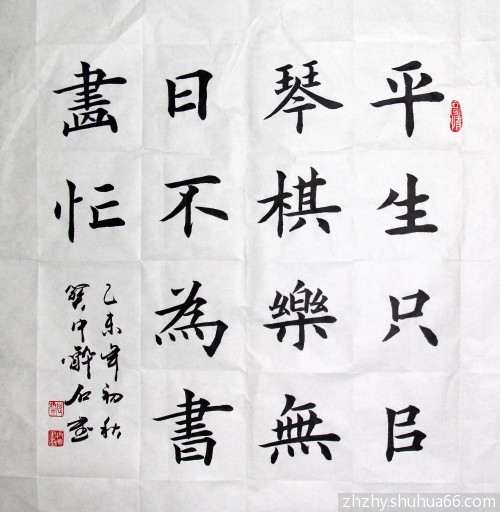 平生只㠯
琴棋樂無
日不為書
畵忙
乙未年初秋
中醉石
zhzhy.shuhua66.com